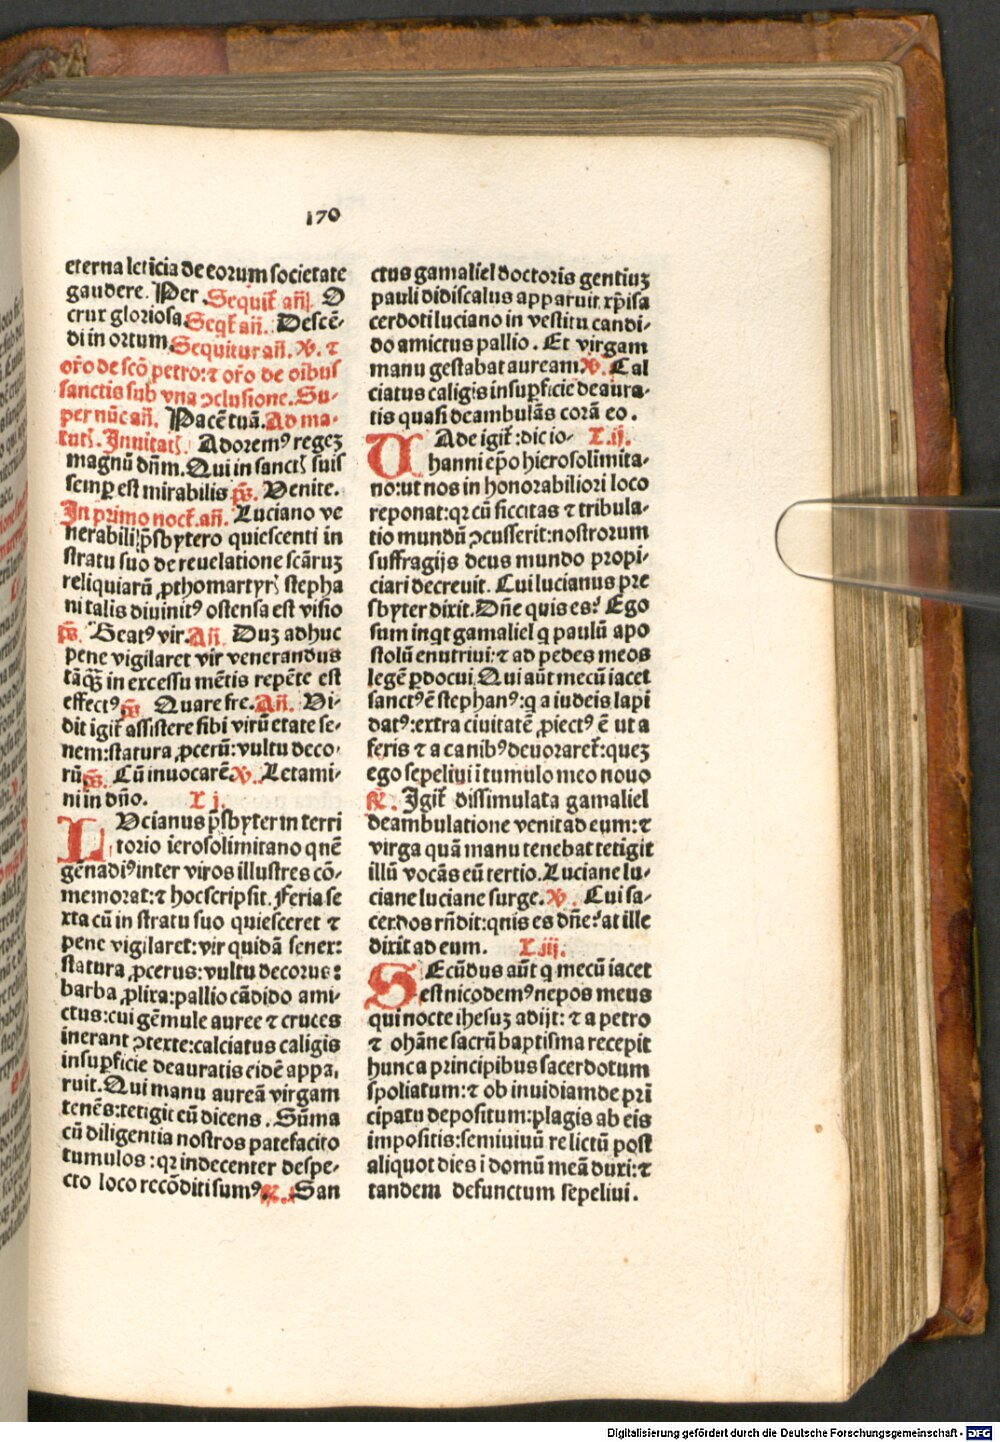 170
eterna leticia de eorum societate
gaudere. Per. Sequit᷑ añ. O
crux gloriosa Seqt᷑ añ. Descē-
di in ortum. Sequitur añ. ℣. ⁊
or̄o de scō petro: ⁊ or̄o de oībus
sanctis sub vna ↄclusione. Su-
per nūc añ. Pacē tuā. Ad ma-
tut. Inuitat. Adorem⁹ regeʒ
magnū dn̄m. Qui in sanct suis
semꝑ est mirabilis ps. Venite.
In primo noct. añ. Luciano ve
nerabili p̄sbytero quiescenti in
stratu suo de reuelatione scāruʒ
reliquiarū ꝓthomartyr stepha
ni talis diuinit⁹ ostensa est visio
ps. Beat⁹ vir. Añ. Duʒ adhuc
pene vigilaret vir venerandus
tāqȝ in excessu mētis repēte est
effect⁹ ps. Quare fre. Añ. Vi-
dit igit᷑ assistere sibi virū etate se-
nem: statura ꝓcerū: vultu deco-
rū ps. Cū inuocarē ℣. Letami-
ni in dn̄o. L j.
LVcianus p̄sbyter in terri
torio ierosolimitano q nē
gēnadi⁹ inter viros illustres cō-
memorat: ⁊ hoc scripsit. Feria se
xta cū in stratu suo quiesceret ⁊
pene vigilaret: vir quidā senex:
statura ꝓcerus: vultu decorus:
barba ꝓlixa: pallio cādido ami-
ctus: cui gēmule auree ⁊ cruces
inerant ↄtexte: calciatus caligis
insuꝑficie deauratis eidē appa-
ruit. Qui manu aureā virgam
tenēs: tetigit cū dicens. Sūma
cū diligentia nostros patefacito
tumulos: qꝛ indecenter despe-
cto loco recōditi sum⁹. ℟. San
ctus gamaliel doctoris gentiuʒ
pauli didiscalus apparuit xp̄i sa
cerdoti luciano in vestitu candi-
do amictus pallio. Et virgam
manu gestabat auream ℣. Cal
ciatus caligis insuꝑficie deaura-
tis quasi deambulās corā eo.
VAde igit᷑: dic io- L. ij.
hanni ep̄o hierosolimita-
no: ut nos in honorabiliori loco
reponat: qꝛ cū siccitas ⁊ tribula-
tio mundū ↄcusserit: nostrorum
suffragijs deus mundo propi-
ciari decreuit. Cui lucianus pre
sbyter dixit. Dn̄e quis es? Ego
sum inqt gamaliel q paulū apo
stolū enutriui: ⁊ ad pedes meos
legē ꝑdocui. Qui aūt mecū iacet
sanct⁹ ē stephan⁹: q a iudeis lapi
dat⁹: extra ciuitatē ꝓiect⁹ ē ut a
feris ⁊ a canib⁹ deuoraret᷑: queʒ
ego sepeliui ī tumulo meo nouo
℟. Igit᷑ dissimulata gamaliel
deambulatione venit ad eum: ⁊
virga quā manu tenebat tetigit
illū vocās eū tertio. Luciane lu-
ciane luciane surge. ℣. Cui sa-
cerdos rn̄dit: qnis es dn̄e? at ille
dixit ad eum. L. iij.
SEcūdus aūt q mecū iacet
est nicodem⁹ nepos meus
qui nocte ihesuʒ adijt: ⁊ a petro
⁊ ohāne sacrū baptisma recepit
hunc a principibus sacerdotum
spoliatum: ⁊ ob inuidiam de pri
cipatu depositum: plagis ab eis
impositis: semiuiuū relictū post
aliquot dies ī domū meā duxi: ⁊
tandem defunctum sepeliui.
Digitalisierung gefördert durch die Deutsche Forschungsgemeinschaft - DFG